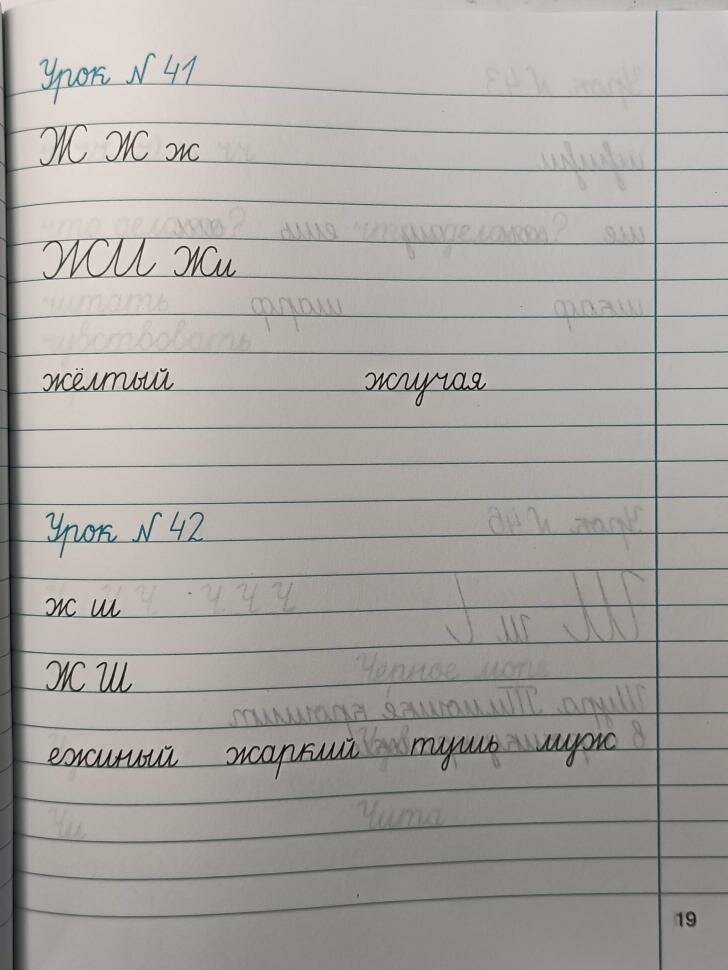 Урок N 41
Ж Ж ж
ЖИ Жи
жёлтый жгучая
Урок N 42
ж ш
Ж Ш
ежиный жаркий тушь муж
19